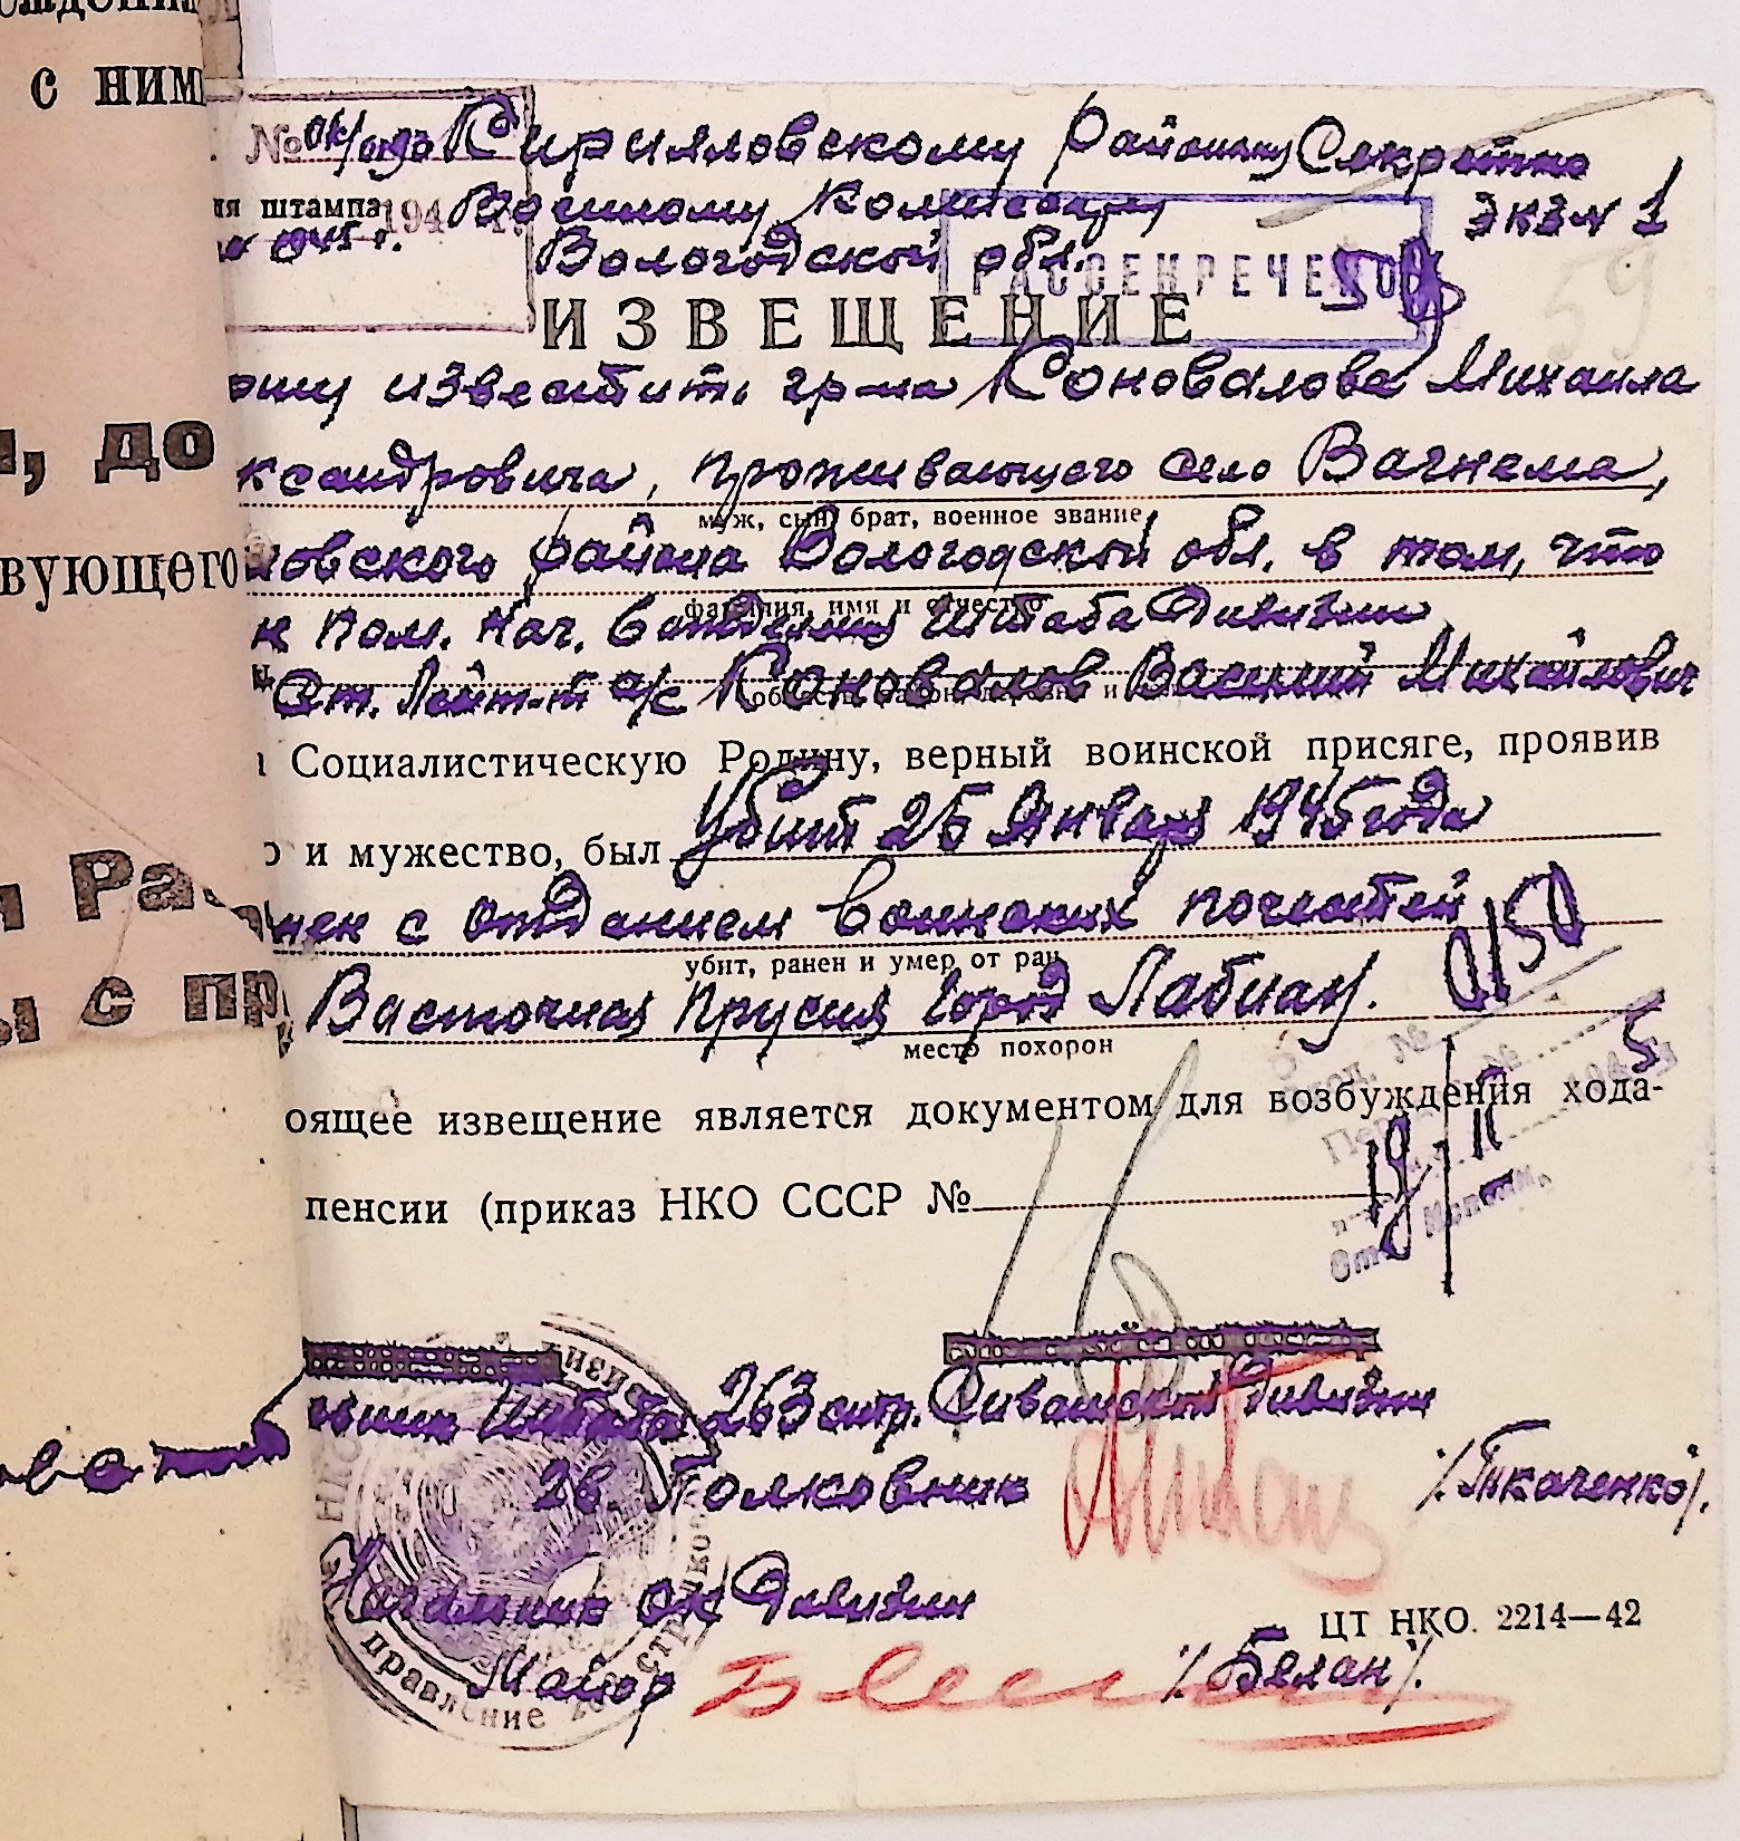 ждения
с ним
и, до
вующего
Ра
ы с пр
вать
№ Кирилловскому Районному Секретно
ия штампа 194 Военному Комиссару экз N 1
Вологодской обл.
РАССЕКРЕЧЕНО
59
ИЗВЕЩЕНИЕ
ошу известить гр-на Коновалова Михаила
ксандровича, проживающего село Вагнема,
муж, сын, брат, военное звание
ловского района Вологодской обл. в том, что
фамилия, имя и отчество
н Пом. Нач. 6 отделения Штаба Дивизии
Ст. Лейт-т а/с Коновалов Василий Михайлович
Социалистическую Родину, верный воинской присяге, проявив
о и мужество, был Убит 25 Января 1945 года
нен с отданием воинских почестей
убит, ранен и умер от ран
Васточная Прусия город Лабиау. 0150
место похорон
Вход. № 5
оящее извещение является документом для возбуждения хода-
19 II
пенсии (приказ НКО СССР №
льник Штаба 263 стр. Сивашской Дивизии
Гв. Полковник /Ткаченко/.
Начальник ок Дивизии
ЦТ НКО. 2214—42
Майор /Белан/.